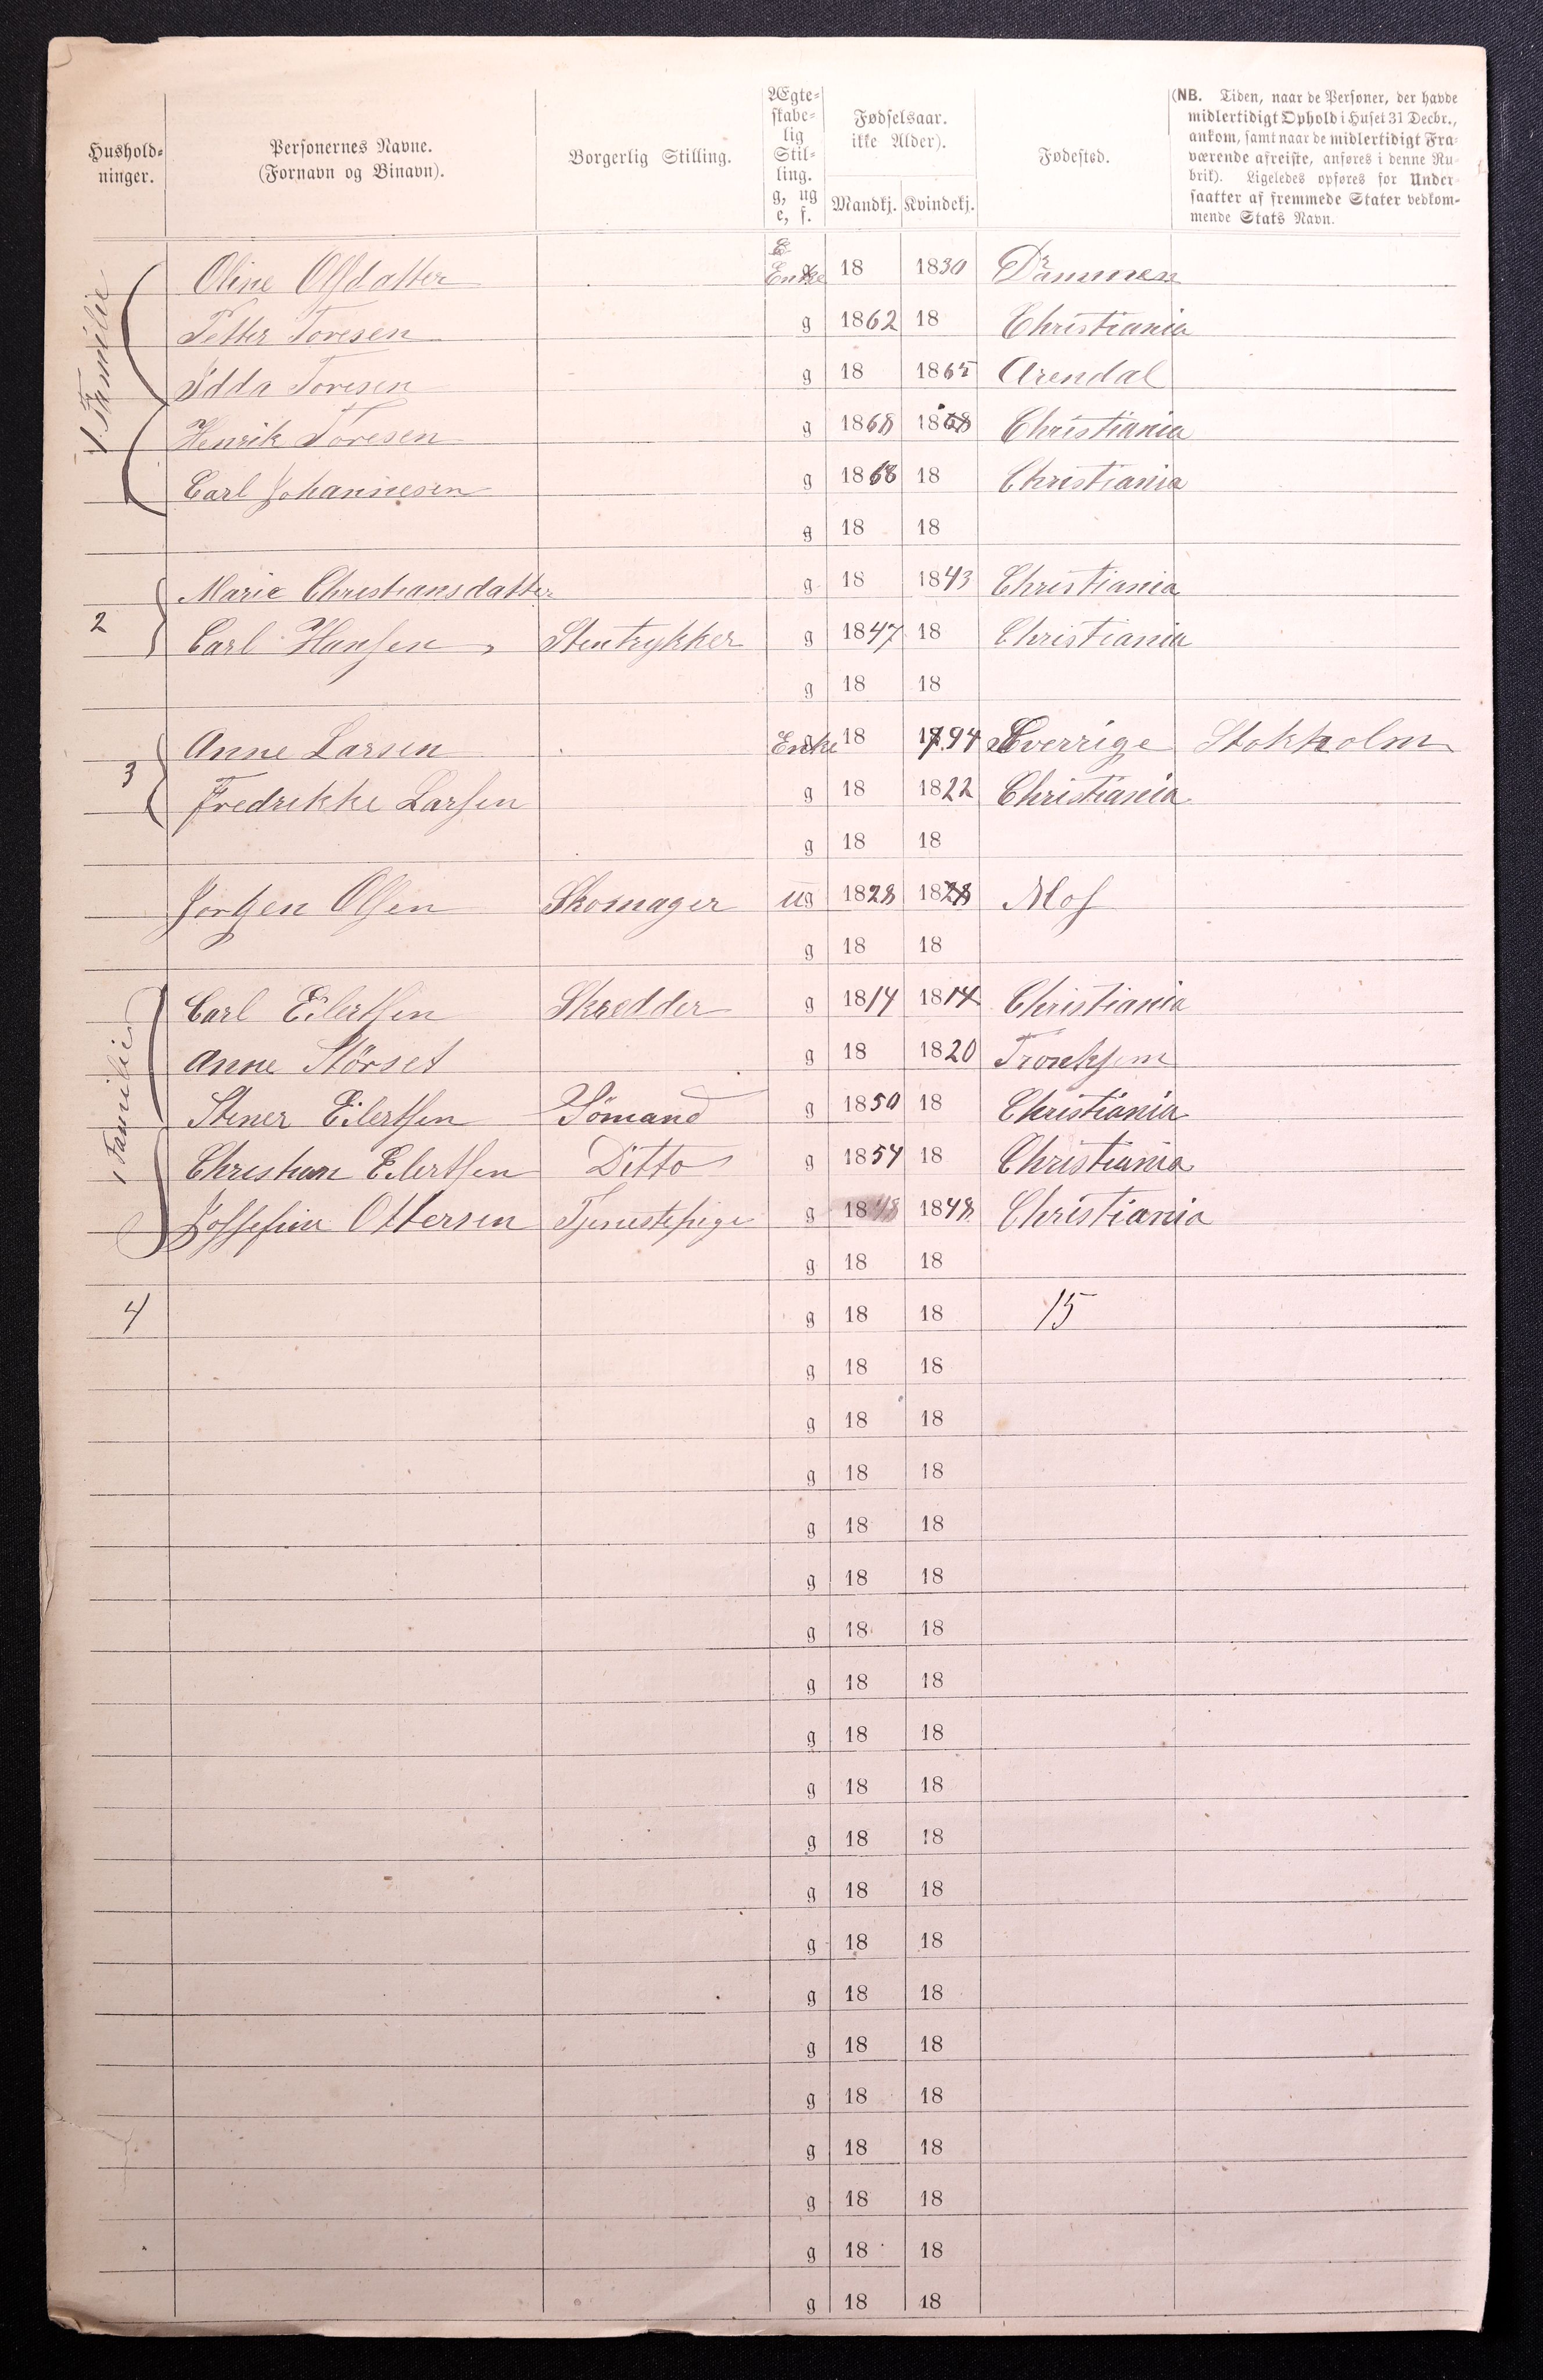 Hushold-
ninger.
Personernes Navne.
(Fornavn og Binavn).
Borgerlig Stilling.
Ægte-
skabe-
lig
Stil-
ling.
g, ug
e, f.
Fødselsaar.
ikke Alder).
Mandkj. Kvindekj.
Fødested.
(NB. Tiden, naar de Personer, der havde
midlertidigt Ophold i Huset 31 Decbr.,
ankom, samt naar de midlertidigt Fra-
værende afreiste, anføres i denne Ru-
brik). Ligeledes opføres for Under-
saatter af fremmede Stater vedkom-
mende Stats Navn.
1 Familie
E
Oline Olsdatter Enke 18 1830 Drammen
Petter Toresen g 1862 18 Christiania
Idda Toresen g 18 1865 Arendal
Henrik Toresen g 1868 1868 Christiania
Carl Johannesen g 1868 18 Christiania
g 18 18
Marie Christiansdatter g 18 1843 Christiania
2 Carl Hansen Stentrykker g 1847 18 Christiania
g 18 18
3 Anne Larsen Enke 18 1794 Sverrige Stokholm
Fredrikke Larsen g 18 1822 Christiania
g 18 18
Jørgen Olsen Skomager ug 1828 1828 Mos
g 18 18
1 Familie
Carl Eilertsen Skredder g 1814 1814 Christiania
Anne Störset g 18 1820 Tronhjem
Stener Eilertsen Sömand g 1850 18 Christiania
Christian Eilertsen Ditto g 1854 18 Christiania
Josefine Ottersen Tjenestepige g 1848 1848 Christiania
g 18 18
4 g 18 18 15
g 18 18
g 18 18
g 18 18
g 18 18
g 18 18
g 18 18
g 18 18
g 18 18
g 18 18
g 18 18
g 18 18
g 18 18
g 18 18
g 18 18
g 18 18
g 18 18
g 18 18
g 18 18
g 18 18